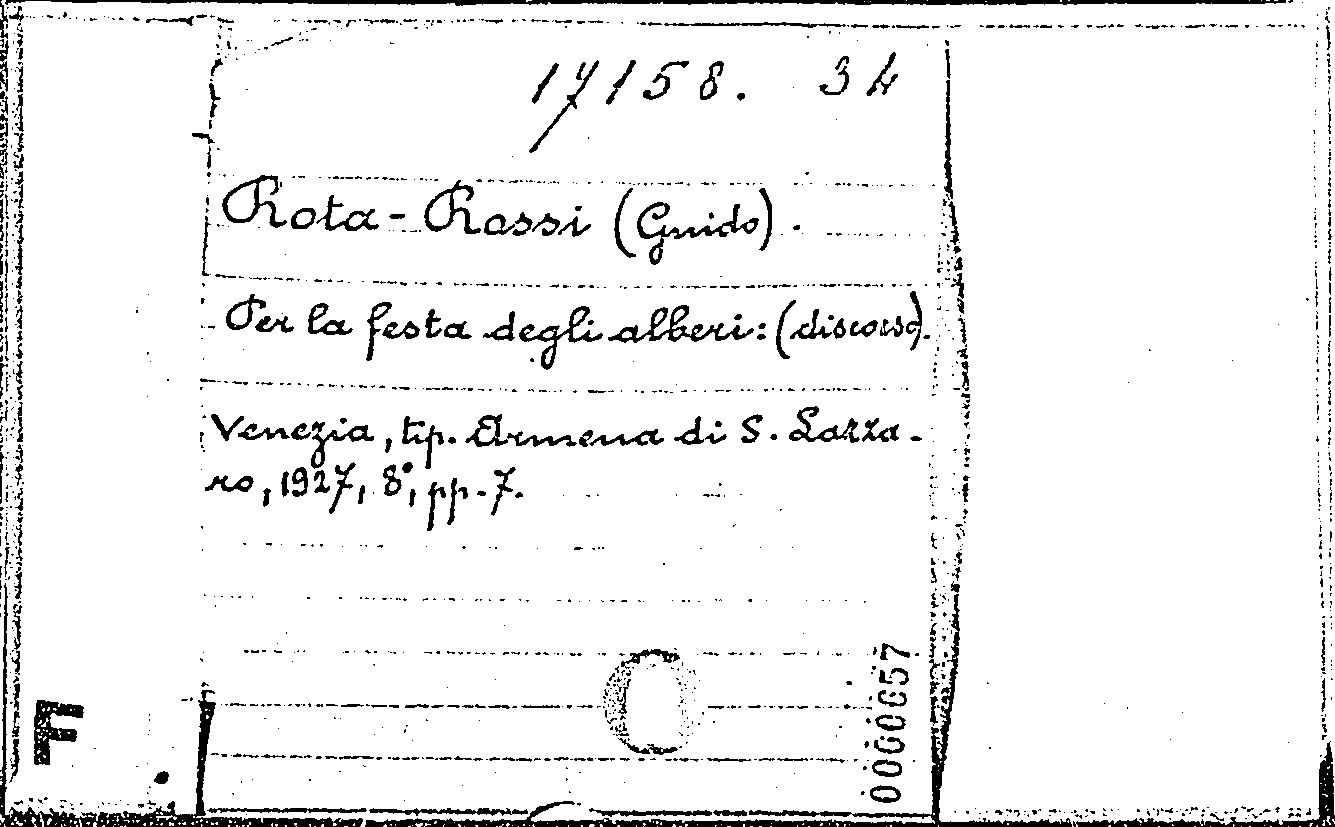 17158. 34
Rota-Rossi (Guido).
Per la festa degli alberi: (discorso).
Venezia, tip. Armena di S. Lazza-
ro, 1927, 8°, pp. 7.
0000057
F